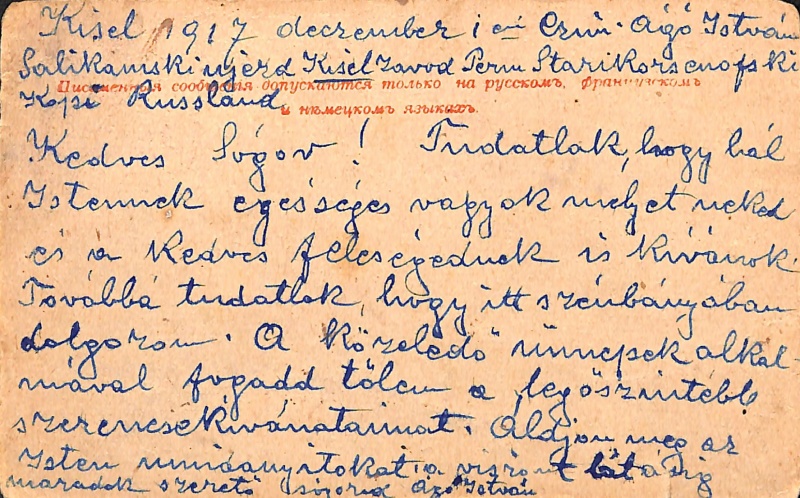 Kisel 1917 deczember 1 én Czim. Ágó István
Salikamski ujezd Kisel Zavod Perm Starikorsenofski
Письменныя сообщенія допускаются только на русскомъ, французскомъ
Kopi Russland
и нѣмецкомъ языкахъ.
Kedves Sógor! Tudatlak, hogy hál
Istennek egésséges vagyok melyet neked
és a kedves feleségednek is kívánok.
Továbbá tudatlak, hogy itt szénbányában
dolgozom. A közeledő ünnepek alkal-
mával fogadd tőlem a legőszintébb
szerencsekivánataimat. Áldjon meg az
Isten mindanyitokat a viszont látásig
maradok szerető sógorod Ágó István